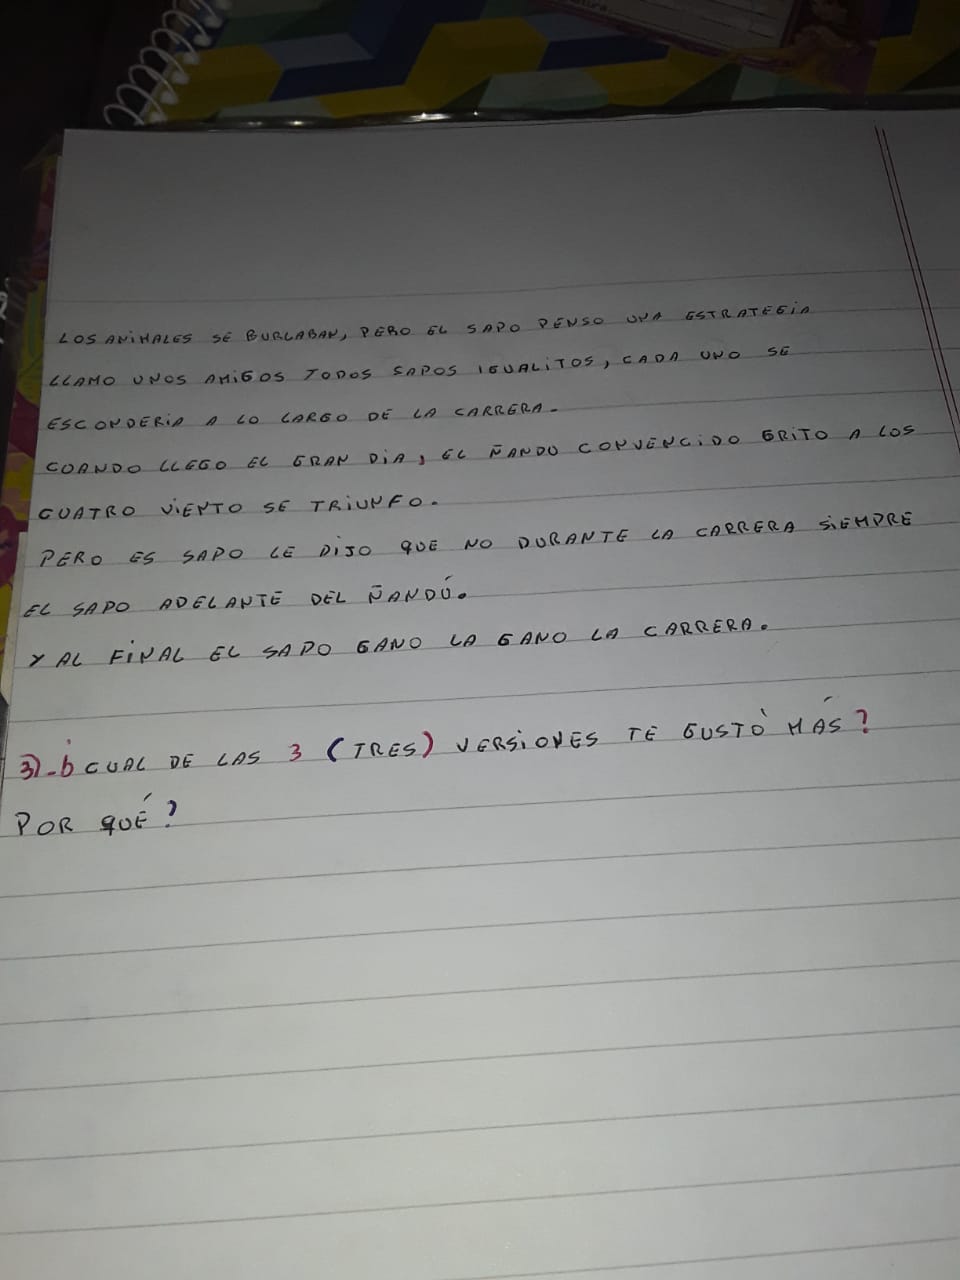 LOS ANIMALES SE BURLABAN, PERO EL SAPO PENSO UNA ESTRATEGIA
LLAMO UNOS AMIGOS TODOS SAPOS IGUALITOS, CADA UNO SE
ESCONDERIA A LO LARGO DE LA CARRERA.
CUANDO LLEGO EL GRAN DIA, EL ÑANDU CONVENCIDO GRITO A LOS
CUATRO VIENTO SE TRIUNFO.
PERO ES SAPO LE DIJO QUE NO DURANTE LA CARRERA SIEMPRE
EL SAPO ADELANTE DEL ÑANDÚ.
Y AL FINAL EL SAPO GANO LA GANO LA CARRERA.
3)-¿CUAL DE LAS 3 (TRES) VERSIONES TE GUSTÒ MÁS?
POR QUÉ?